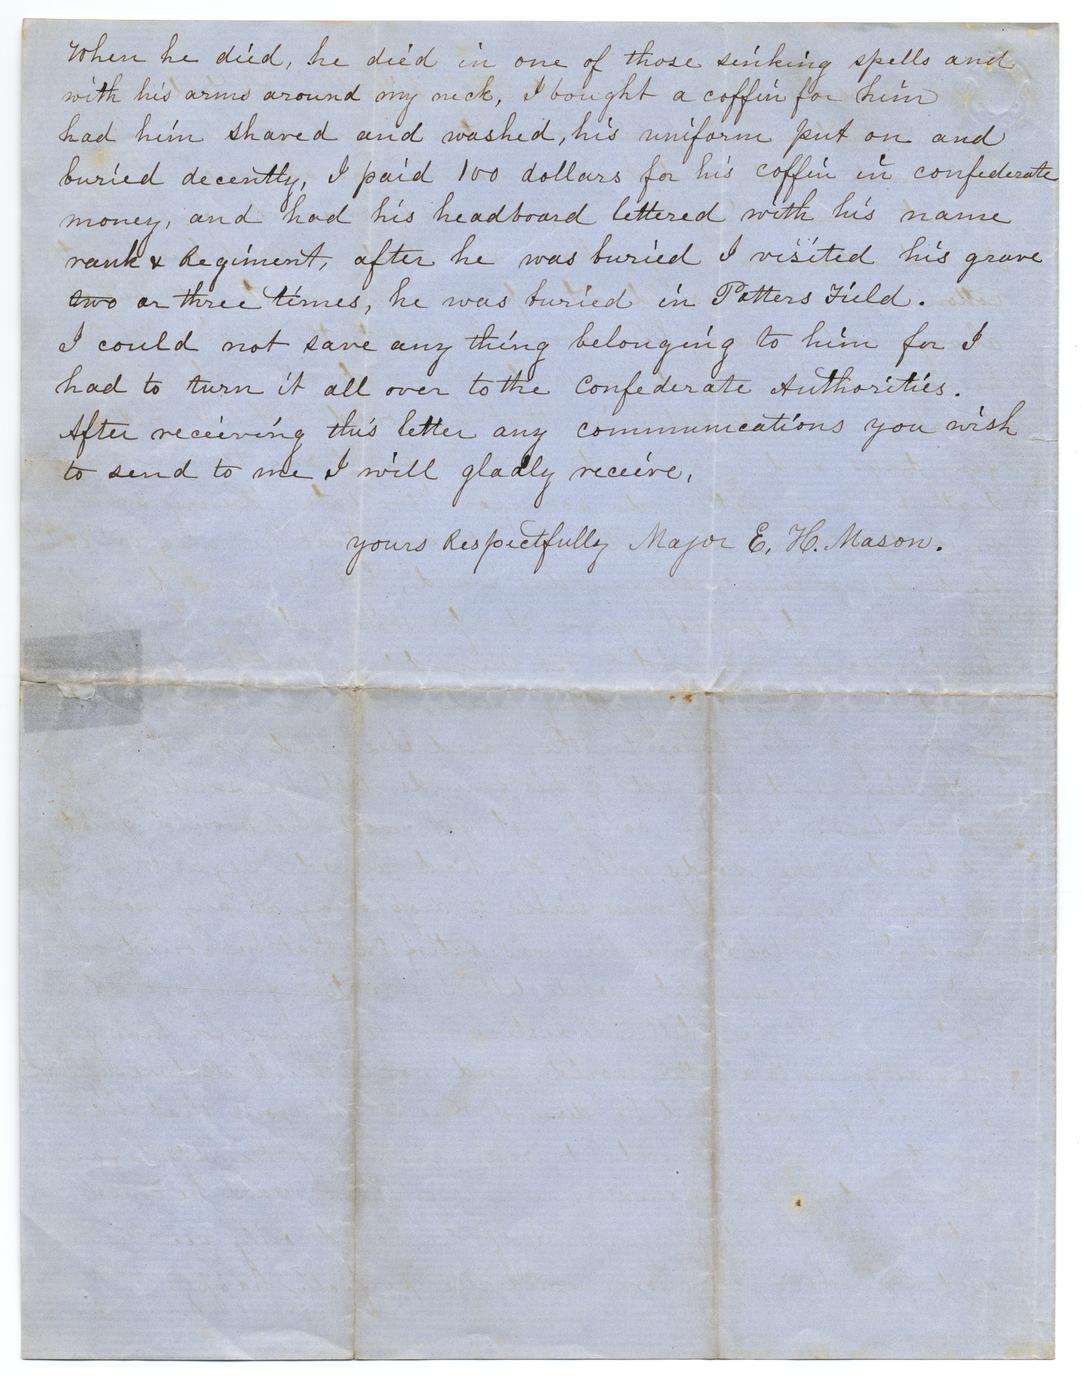 When he died, he died in one of those sinking spells and
with his arms around my neck, I bought a coffin for him
had him shaved and washed, his uniform put on and
buried decently, I paid 100 dollars for his coffin in confederate
money, and had his headboard lettered with his name
rank & Regiment, after he was buried I visited his grave
two or three times, he was buried in Potters Field.
I could not save any thing belonging to him for I
had to turn it all over to the Confederate Authorities.
After receiving this letter any communications you wish
to send to me I will gladly receive,
yours Respectfully Major E. H. Mason.